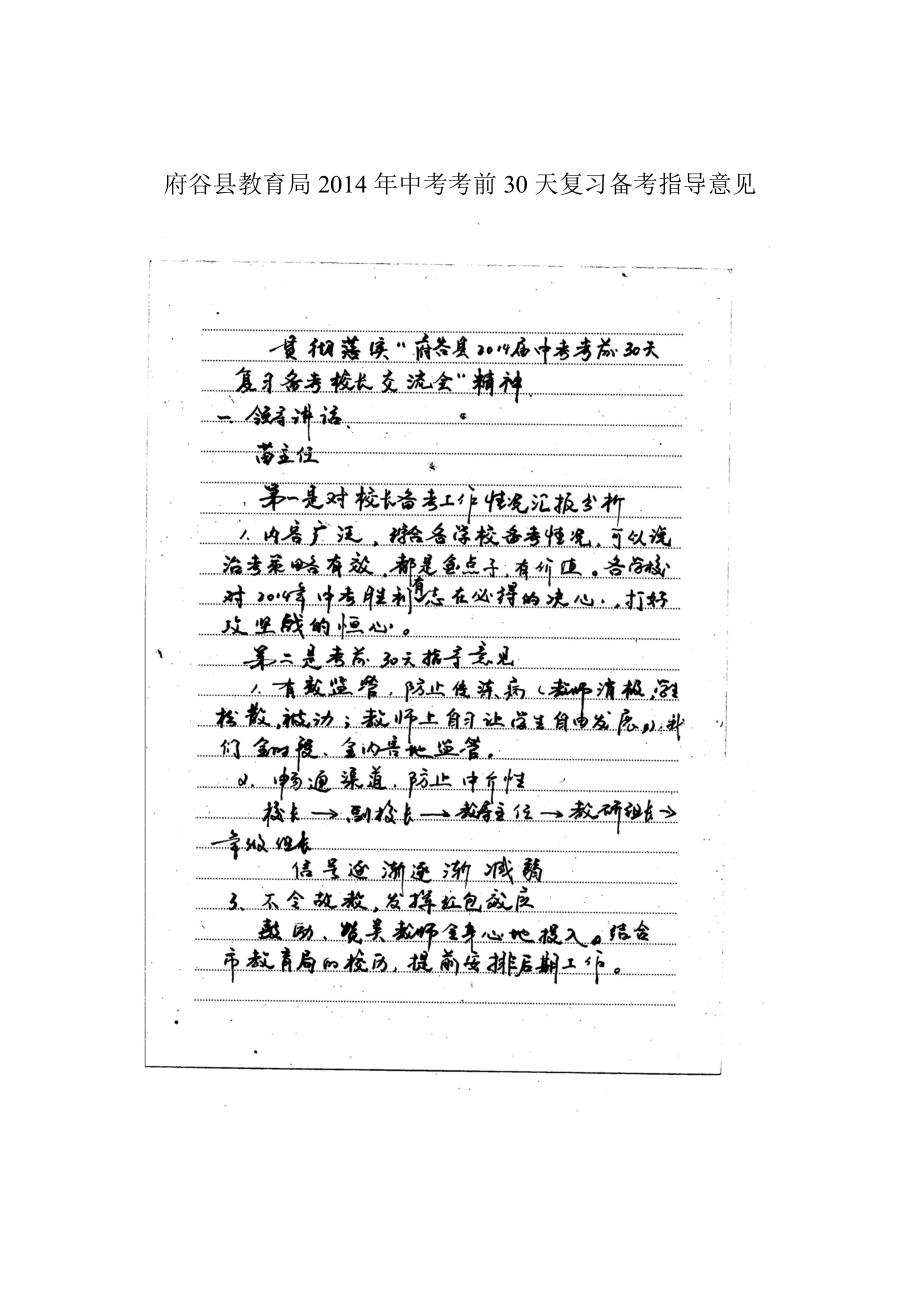 府谷县教育局 2014 年中考考前 30 天复习备考指导意见
贯彻落实“府谷县2014届中考考前30天
复习备考校长交流会”精神
一、领导讲话、
苗主任
第一是对校长备考工作情况汇报分析
1、内容广泛，综合各学校备考情况，可以说
治考策略有效，都是金点子，有价值。各学校
对2014年中考胜利有志在必得的决心，打好
攻坚战的恒心。
第二是考前30天指导意见
1、有效监管，防止传染病（教师消极，学生
松散，被动；教师上自习让学生自由发展），我
们全时段、全内容地监管。
2、畅通渠道，防止中介性
校长→副校长→教导主任→教研组长→
年级组长
信号逐渐逐渐减弱
3、不令故教，发挥红包效应
鼓励、赞美教师全身心地投入。结合
市教育局的校历，提前安排后期工作。